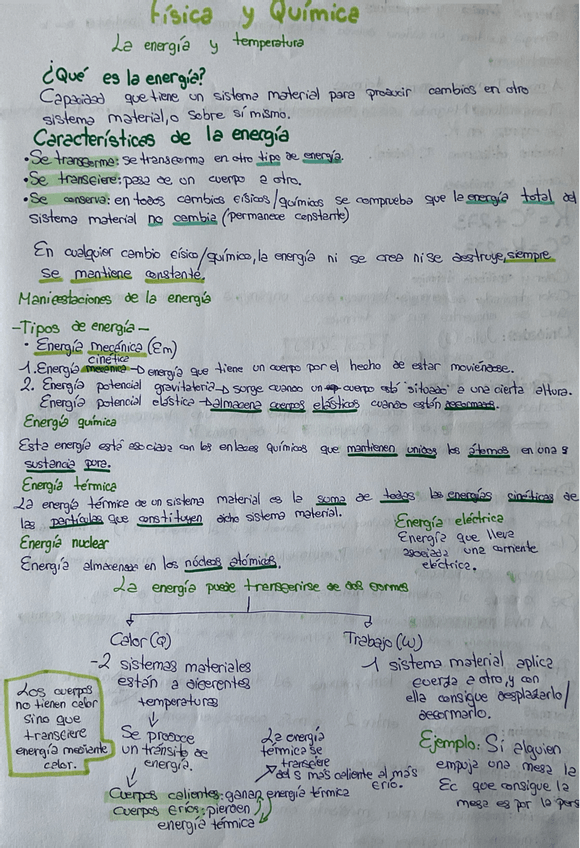 Física y Química
La energía y temperatura
¿Qué es la energía?
Capacidad que tiene un sistema material para producir cambios en otro
sistema material, o sobre sí mismo.
Características de la energía
• Se transforma: se transforma en otro tipo de energía.
• Se transfiere: pasa de un cuerpo a otro.
• Se conserva: en todos cambios físicos/químicos se comprueba que la energía total del
sistema material no cambia (permanece constante)
En cualquier cambio físico/químico, la energía ni se crea ni se destruye, siempre
se mantiene constante.
Manifestaciones de la energía
- Tipos de energía -
• Energía mecánica (Em)
cinética
1. Energía mecánica → energía que tiene un cuerpo por el hecho de estar moviéndose.
2. Energía potencial gravitatoria → surge cuando un cuerpo está situado a una cierta altura.
Energía potencial elástica → almacena cuerpos elásticos cuando están deformados.
Energía química
Esta energía está asociada con los enlaces químicos que mantienen unidos los átomos en una s
sustancia pura.
Energía térmica
La energía térmica de un sistema material es la suma de todas las energías cinéticas de
las partículas que constituyen dicho sistema material.
Energía eléctrica
Energía que lleva
asociada una corriente
eléctrica.
Energía nuclear
Energía almacenada en los núcleos atómicos.
La energía puede transferirse de dos formas
Calor (Q)
- 2 sistemas materiales
están a diferentes
temperaturas
Se produce
un tránsito de
energía.
La energía
térmica se
transfiere
del S más caliente al más
frío.
Cuerpos calientes: ganan energía térmica
Cuerpos fríos: pierden
energía térmica
Los cuerpos
no tienen calor
sino que
transfiere
energía mediante
calor.
Trabajo (W)
1 sistema material aplica
fuerza a otro, y con
ella consigue desplazarlo/
deformarlo.
Ejemplo: Si alguien
empuja una mesa la
Ec que consigue la
mesa es por la pers